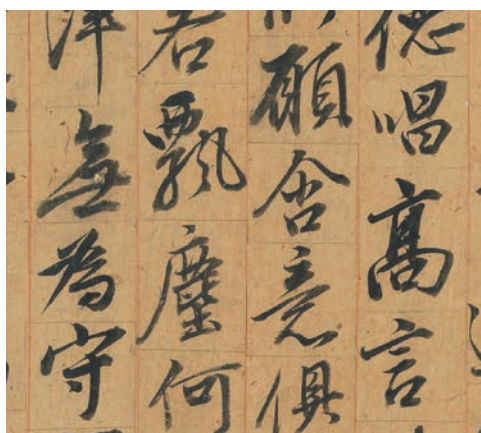 德唱髙言
所願含意俱
若飄塵何
津無為守